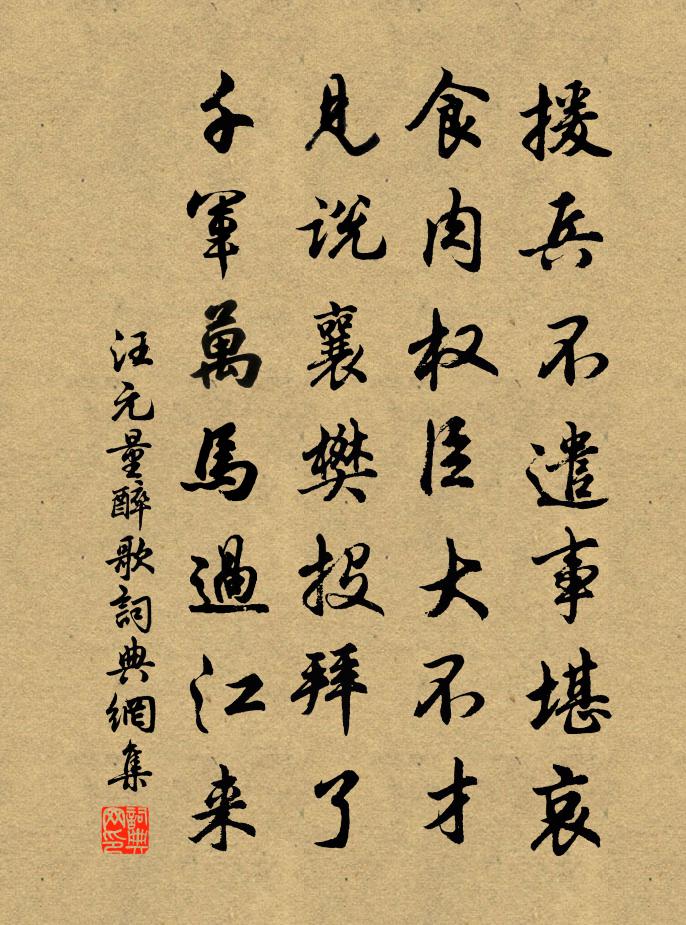 援兵不遣事堪哀
食肉权臣大不才
見说襄樊投拜了
千軍萬馬過江来
汪元量醉歌詞典網集
詞典網印